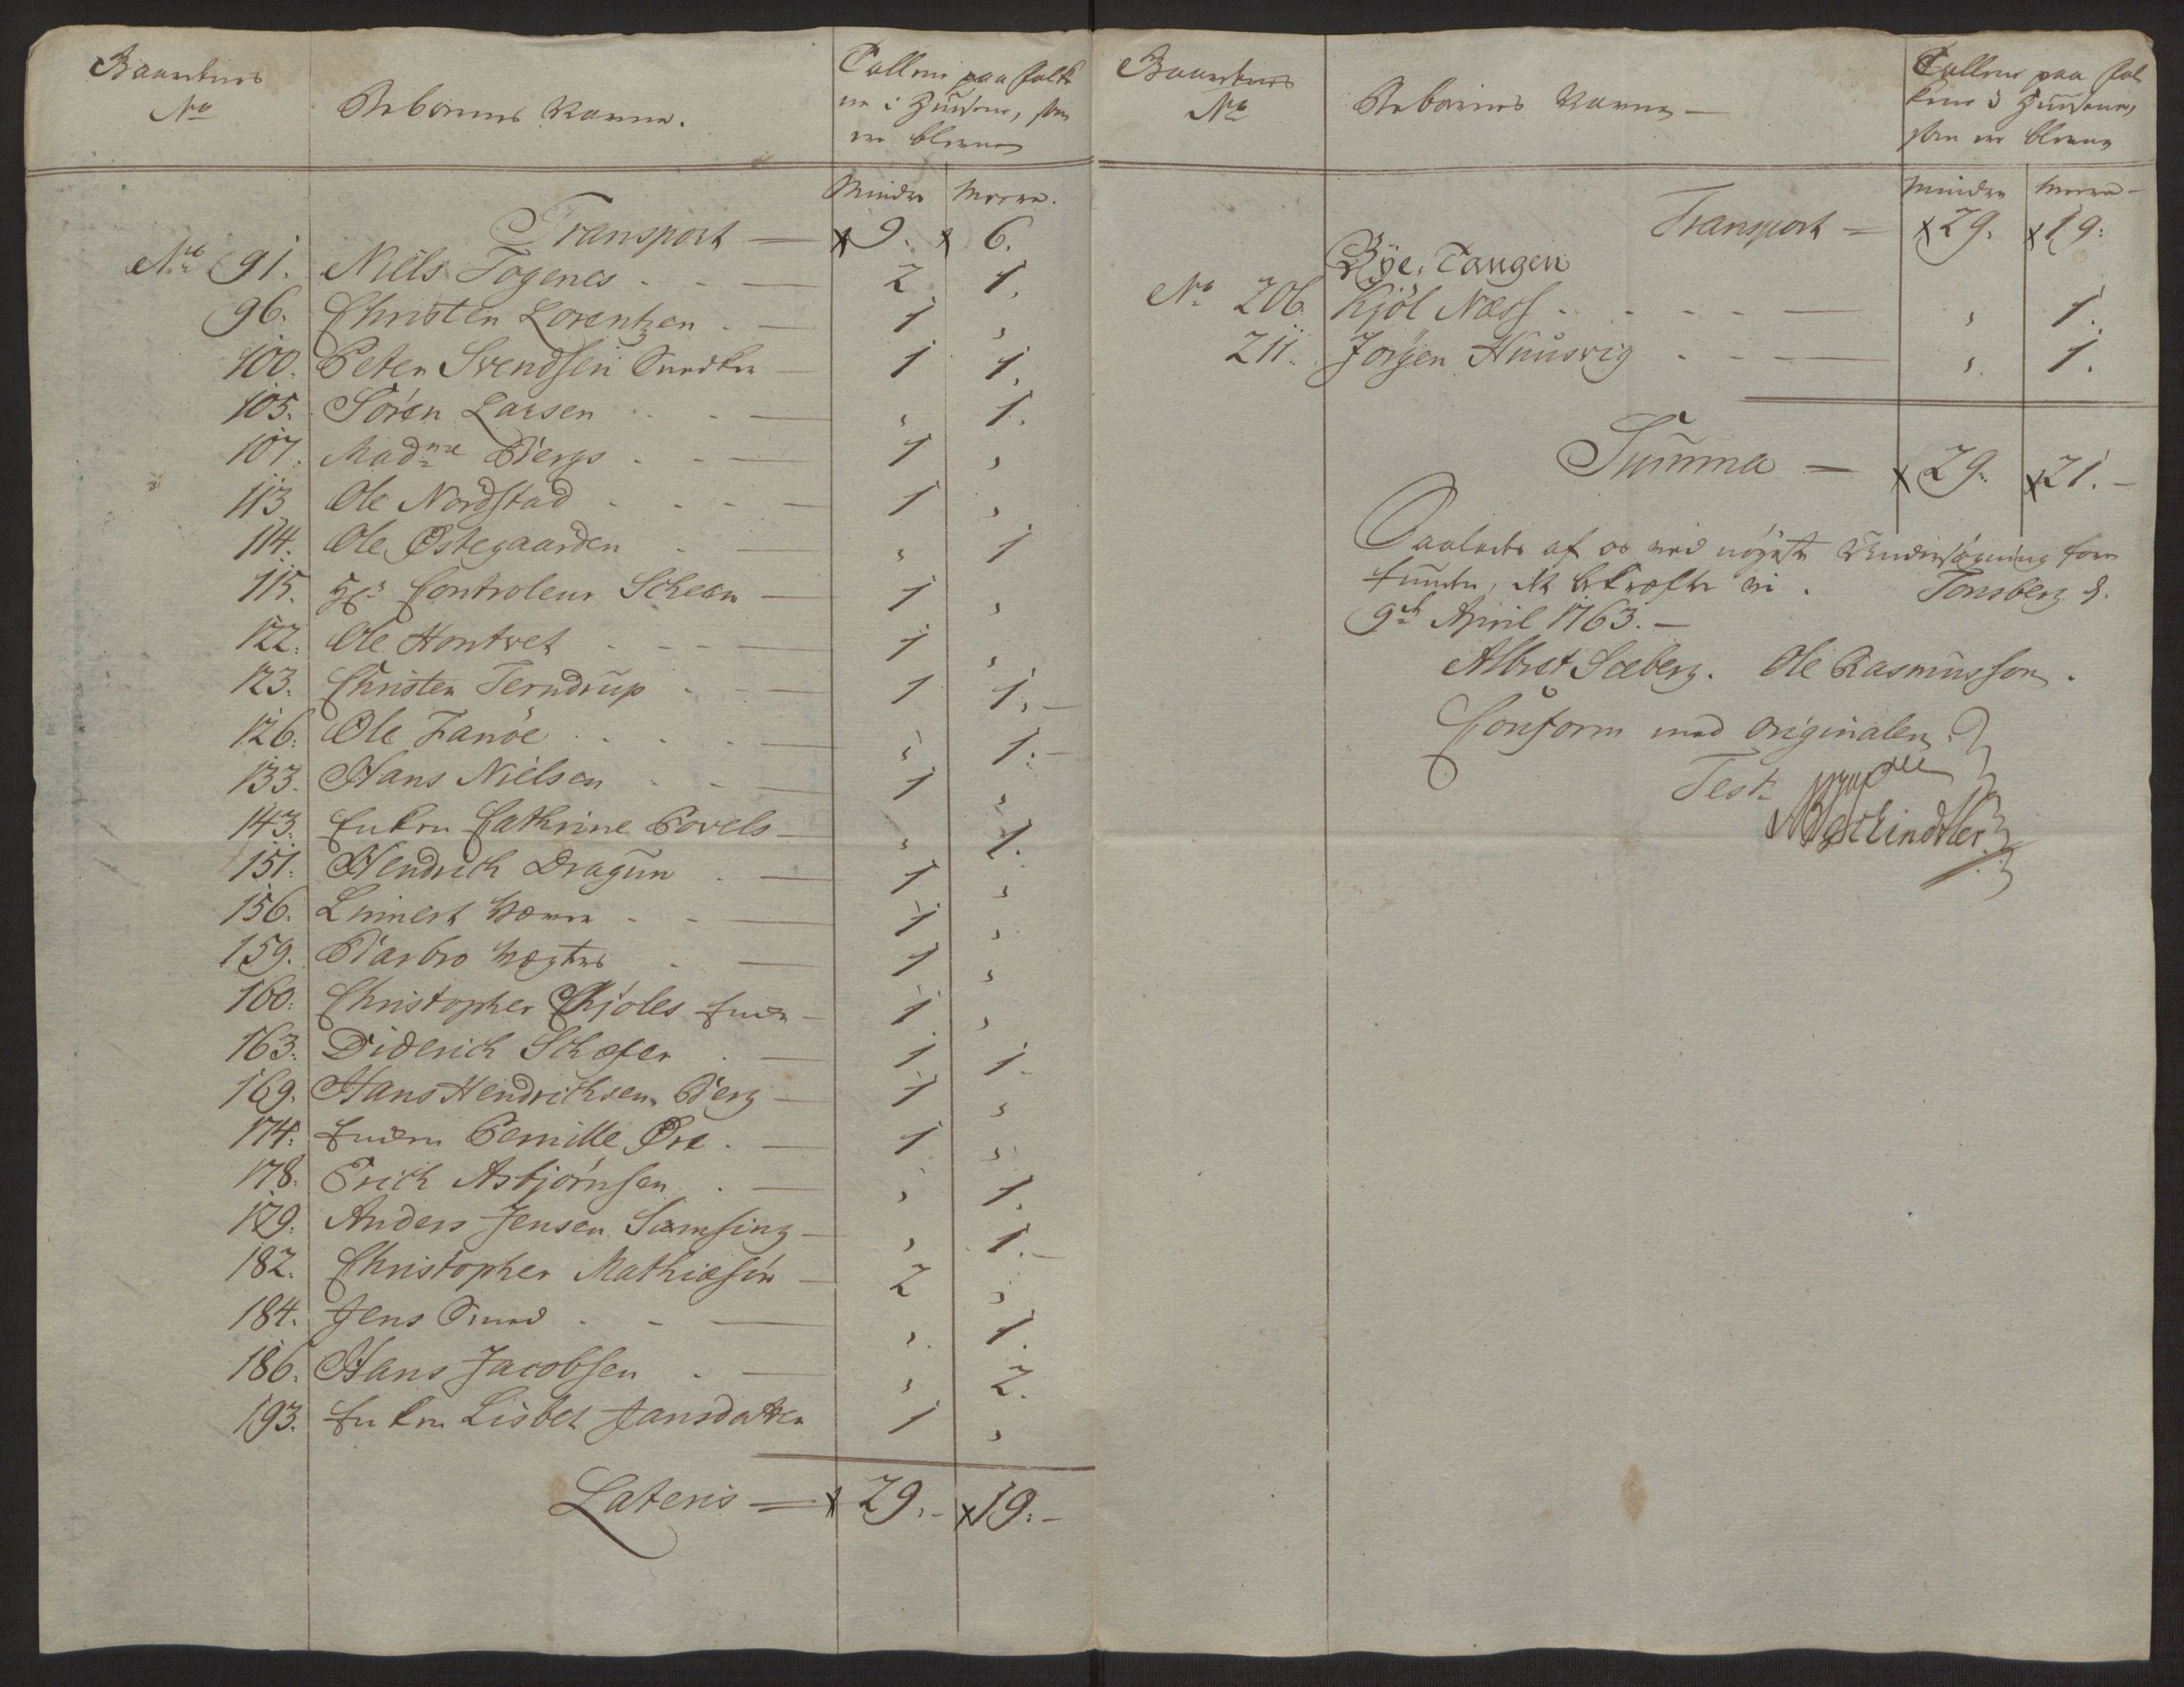 Baardens
No
Beboernes Navne.
Tallene paa Folke
ne i Huusene, som
ere blevne
Mindre Meere.
Transport — x 9. x 6.
No 91. Niels Togenes - - — 2 1.
96. Christen Lorentzen - — 1 "
100. Peter Svendsen Snedker — 1 1.
105. Sören Larsen - - — " 1.
107. Madme Bergs - - — 1 "
113 Ole Nordstad - - - — 1 "
114. Ole Østegaarden - — " 1
115. Hr Controleur Scheen — 1 "
122. Ole Hontvet - - - — 1 "
123. Christen Terndrup - - — 1 1. —
126. Ole Fanöe - - - — " 1. —
133. Hans Nielsen - - — 1 "
143. Enken Cathrine Povels — " 1.
151. Hendrich Dragun - — 1 "
156. Linnert - - — 1 "
159. Barbro Vegters - — 1 "
160. Christopher Chjöles Enke — 1 "
163. Diderich Schæfer - — 1 1.
169. Hans Hendrichsen Berg — 1 "
174. Enken Pernille Øre - — 1 "
178. Erich Asbjörnsen - — " 1.
179. Anders Jensen Samsing — " 1. —
182. Christopher Mathiesen — 2 "
184. Jens Smed - - — " 1.
186. Hans Jacobsen - — " 2.
193. Enken Lisbet Jansdatter 1 "
Lateris = x 29. - x 19. -
Baardens
No
Beboernes Navne —
Tallene paa Fol
kene i Huusene,
som ere blevne
Mindre Meere -
Transport = x 29. x 19:
Bye. Tangen
No 206 Kjöl Næss - - - - — " 1.
211. Jörgen Huusvig - - — " 1.
Summa — x 29. x 21. -
Saaledes af os ved nöyeste Undersögning for
funden, det bekræfter vi. Tonsberg d.
9de April 1763. —
Albret Seeberg. Ole Rasmussen.
Conform med Originalen
Test.